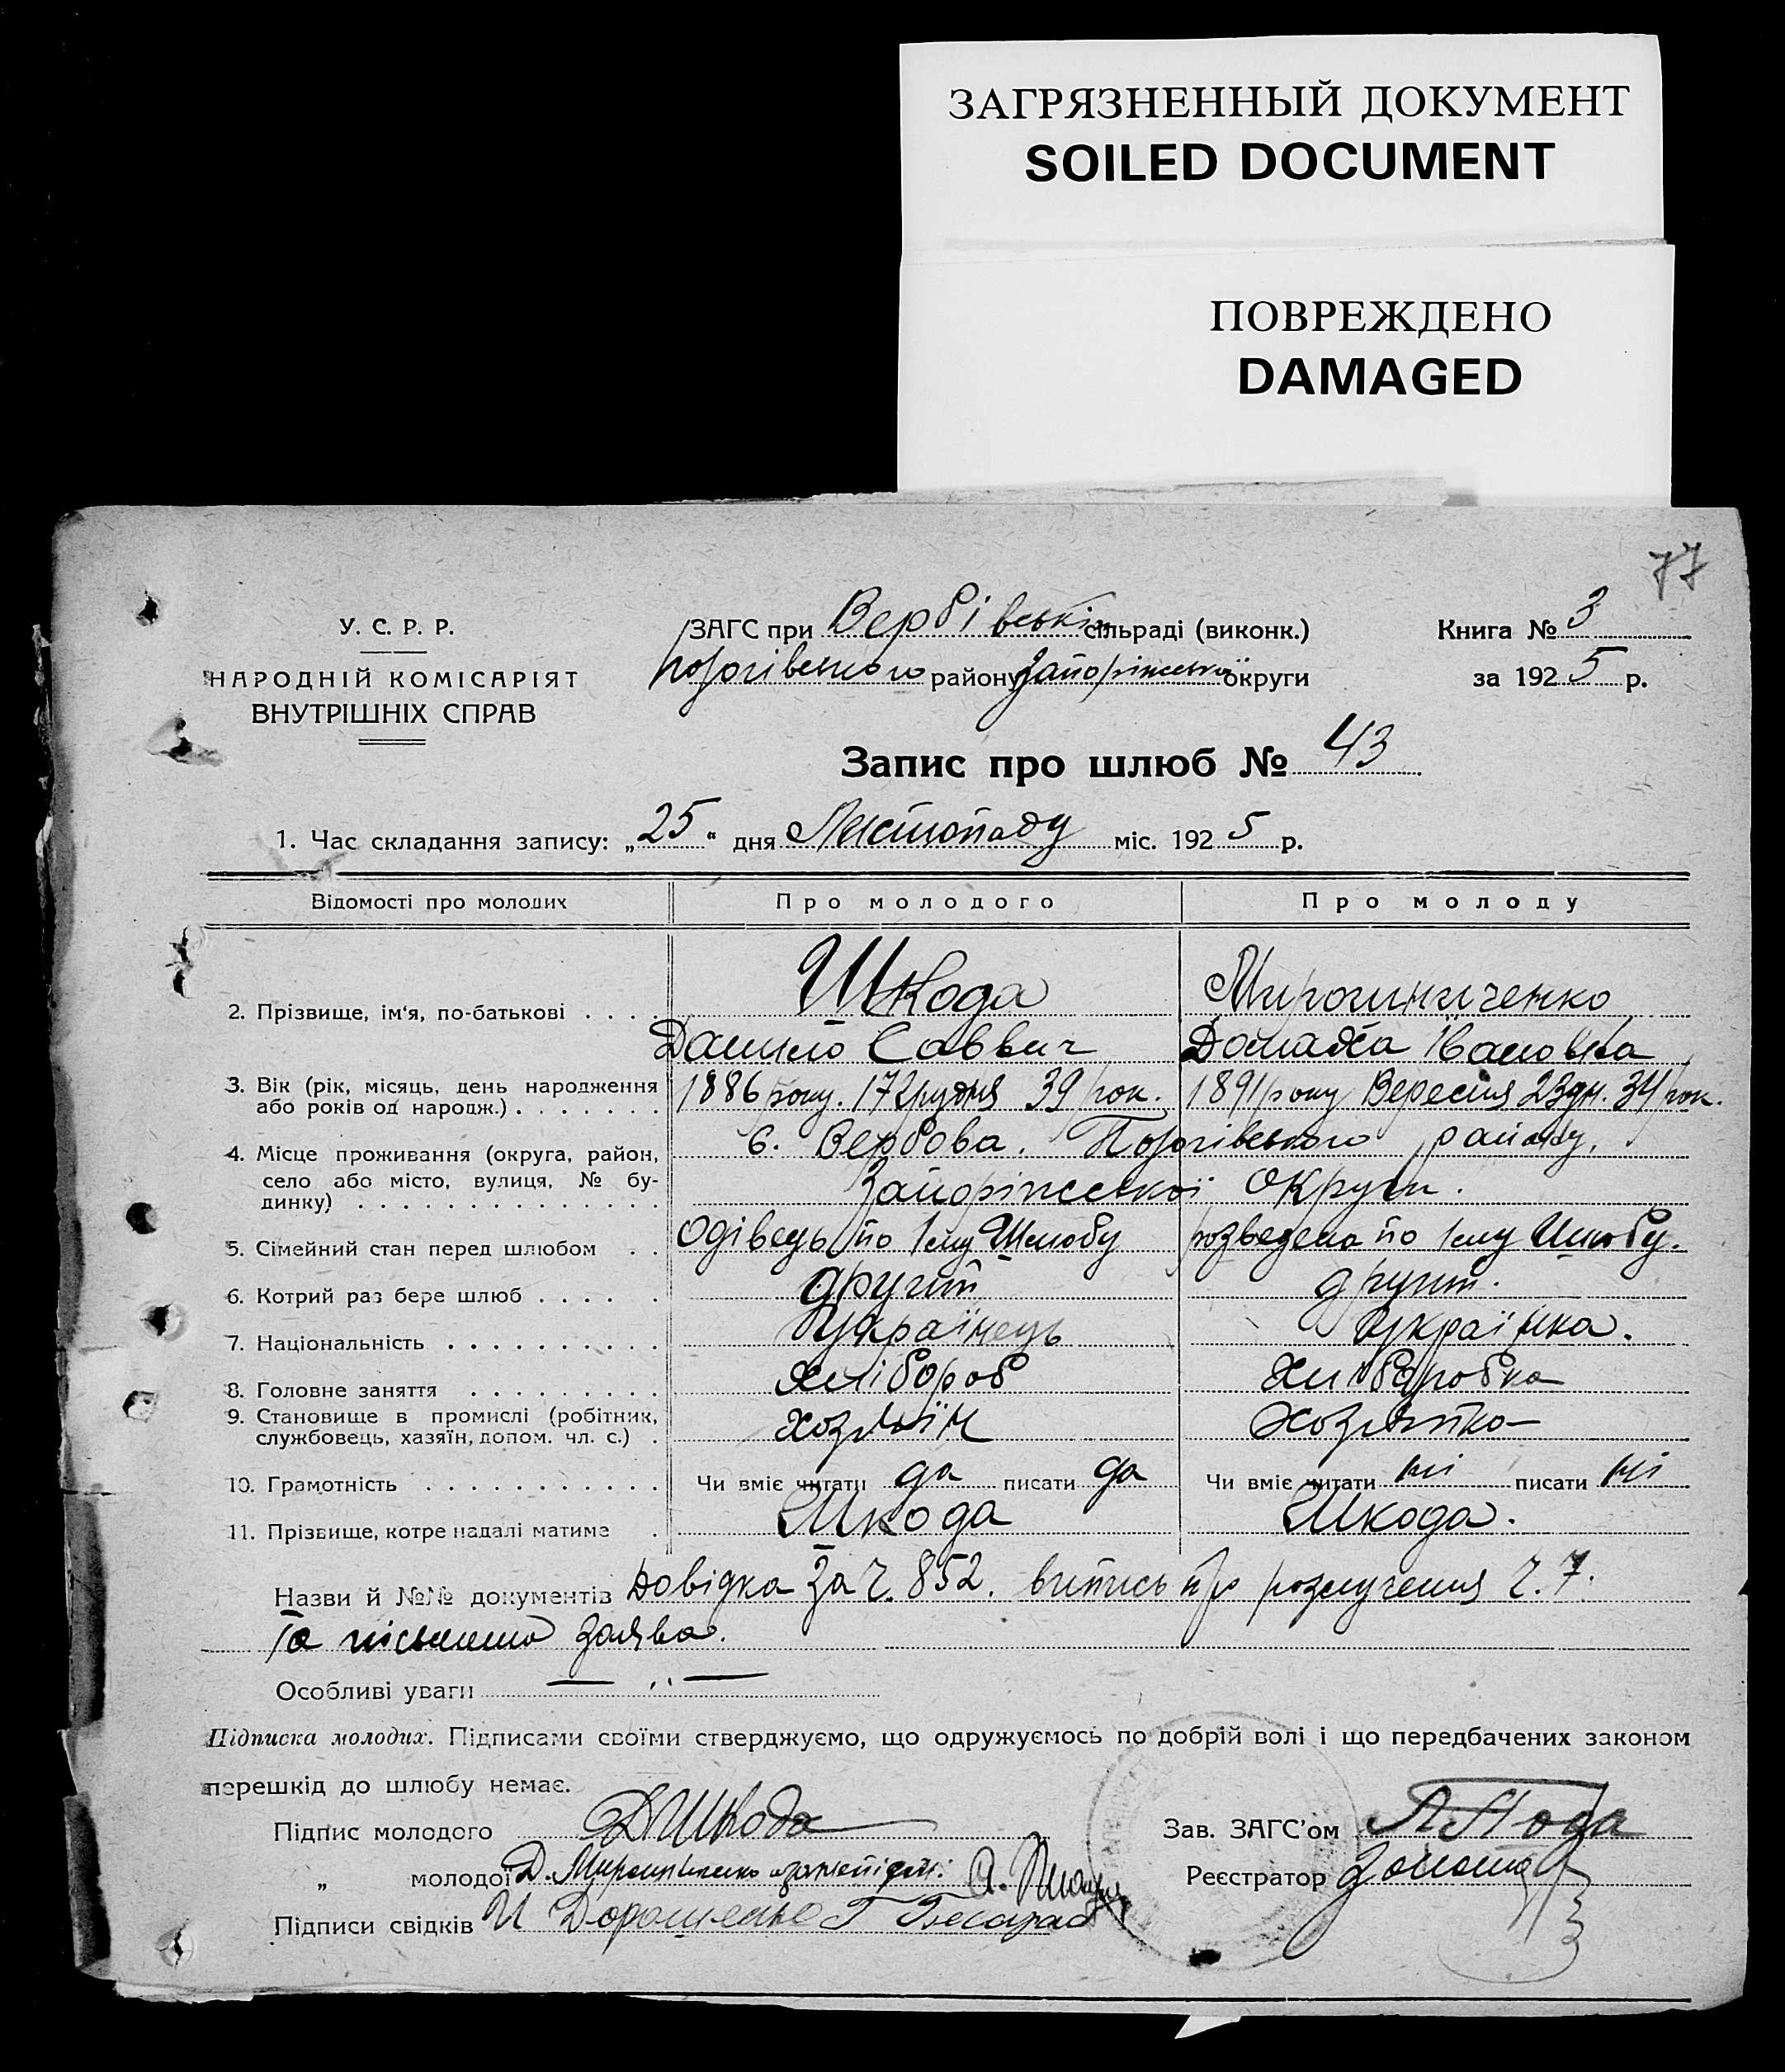 ЗАГРЯЗНЕННЫЙ ДОКУМЕНТ
SOILED DOCUMENT
ПОВРЕЖДЕНО
DAMAGED
77
У. С. Р. Р.
НАРОДНІЙ КОМІСАРІЯТ
ВНУТРІШНІХ СПРАВ
ЗАГС при Вербівській сільраді (виконк.)
Пологівського району Запоріжської округи
Книга № 3
за 1925 р.
Запис про шлюб № 43
1. Час складання запису: „25“ дня Листопаду міс. 1925 р.
Відомості про молодих Про молодого Про молоду
2. Прізвище, ім'я, по-батькові . . . . Шкода Мирошниченко
Данило Саввич Домаха Івановна
3. Вік (рік, місяць, день народження або років од народж.) . . . . . . . 1886 року. 17 грудня 39 рок. 1891 року Вересня 23 дн. 34 рок.
4. Місце проживання (округа, район, село або місто, вулиця, № будинку) . . . . . . . . . . . . . . с. Вербова. Пологівського району,
Запоріжської округи.
5. Сімейний стан перед шлюбом . . Одівець по 1му Шлюбу розведена по 1му Шлюбу.
6. Котрий раз бере шлюб . . . . . другий другий.
7. Національність . . . . . . . . . . Українець Українка.
8. Головне заняття . . . . . . . . . Хлібороб Хліборобка
9. Становище в промислі (робітник, службовець, хазяїн, допом. чл. с.) . хозяїн Хозяйка
10. Грамотність . . . . . . . . . . . Чи вміє читати да писати да Чи вміє читати ні писати ні
11. Прізвище, котре надалі матиме . Шкода Шкода.
Назви й №№ документів Довідка за ч. 852. витпись про розлучения ч. 7.
Та письмена заява.
Особливі уваги — ,, —
Підписка молодих. Підписами своїми стверджуємо, що одружуємось по добрій волі і що передбачених законом
перешкід до шлюбу немає.
Підпис молодого Д Шкода
„ молодої Д. Мирошниченко
Підписи свідків И Дорошенко Г
Зав. ЗАГС'ом
Реєстратор